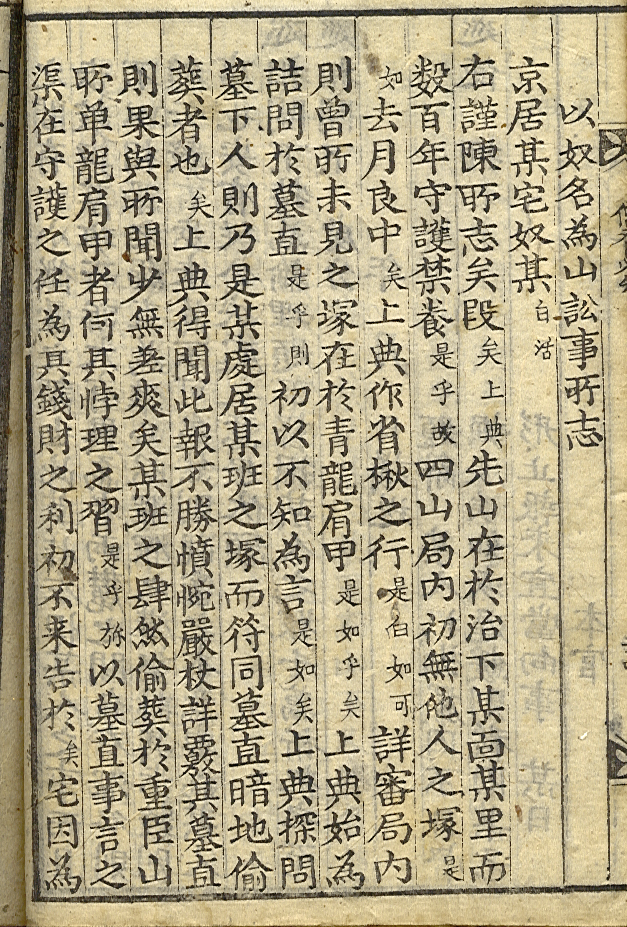 以奴名為山訟事所志
京居某宅奴某白活
右謹陳所志矣段矣上典先山在於治下某面某里而
数百年守護禁養是乎故四山局內初無他人之塚是
如去月良中矣上典作省楸之行是白如可詳審局內
則曾所未見之塚在於青龍肩甲是如乎矣上典始為
詰問於墓直是乎則初以不知為言是如矣上典探問
墓下人則乃是某處居某班之塚而符同墓直暗地偷
葬者也矣上典得聞此報不勝憤惋嚴杖詳覈其墓直
則果與所聞少無差爽矣某班之肆然偷葬於重臣山
所单龍肩甲者何其悖理之習是乎旀以墓直事言之
渠在守護之任為其錢財之利初不来告於矣宅因為